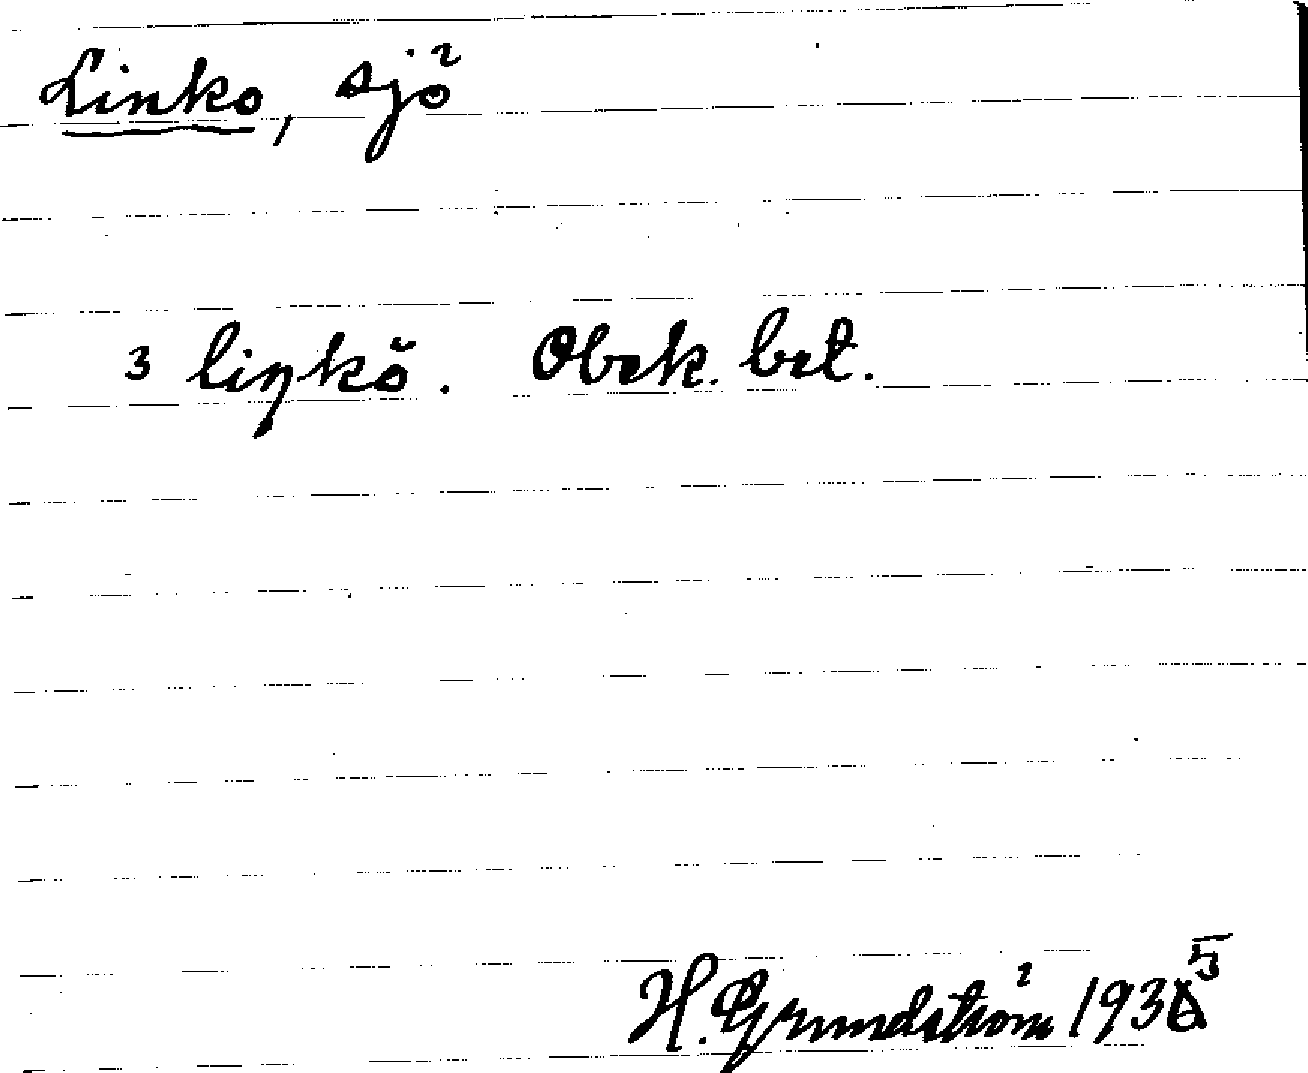 Linko, sjö
3 liŋkŏ. Obek. bet.
H. Grundström 1935